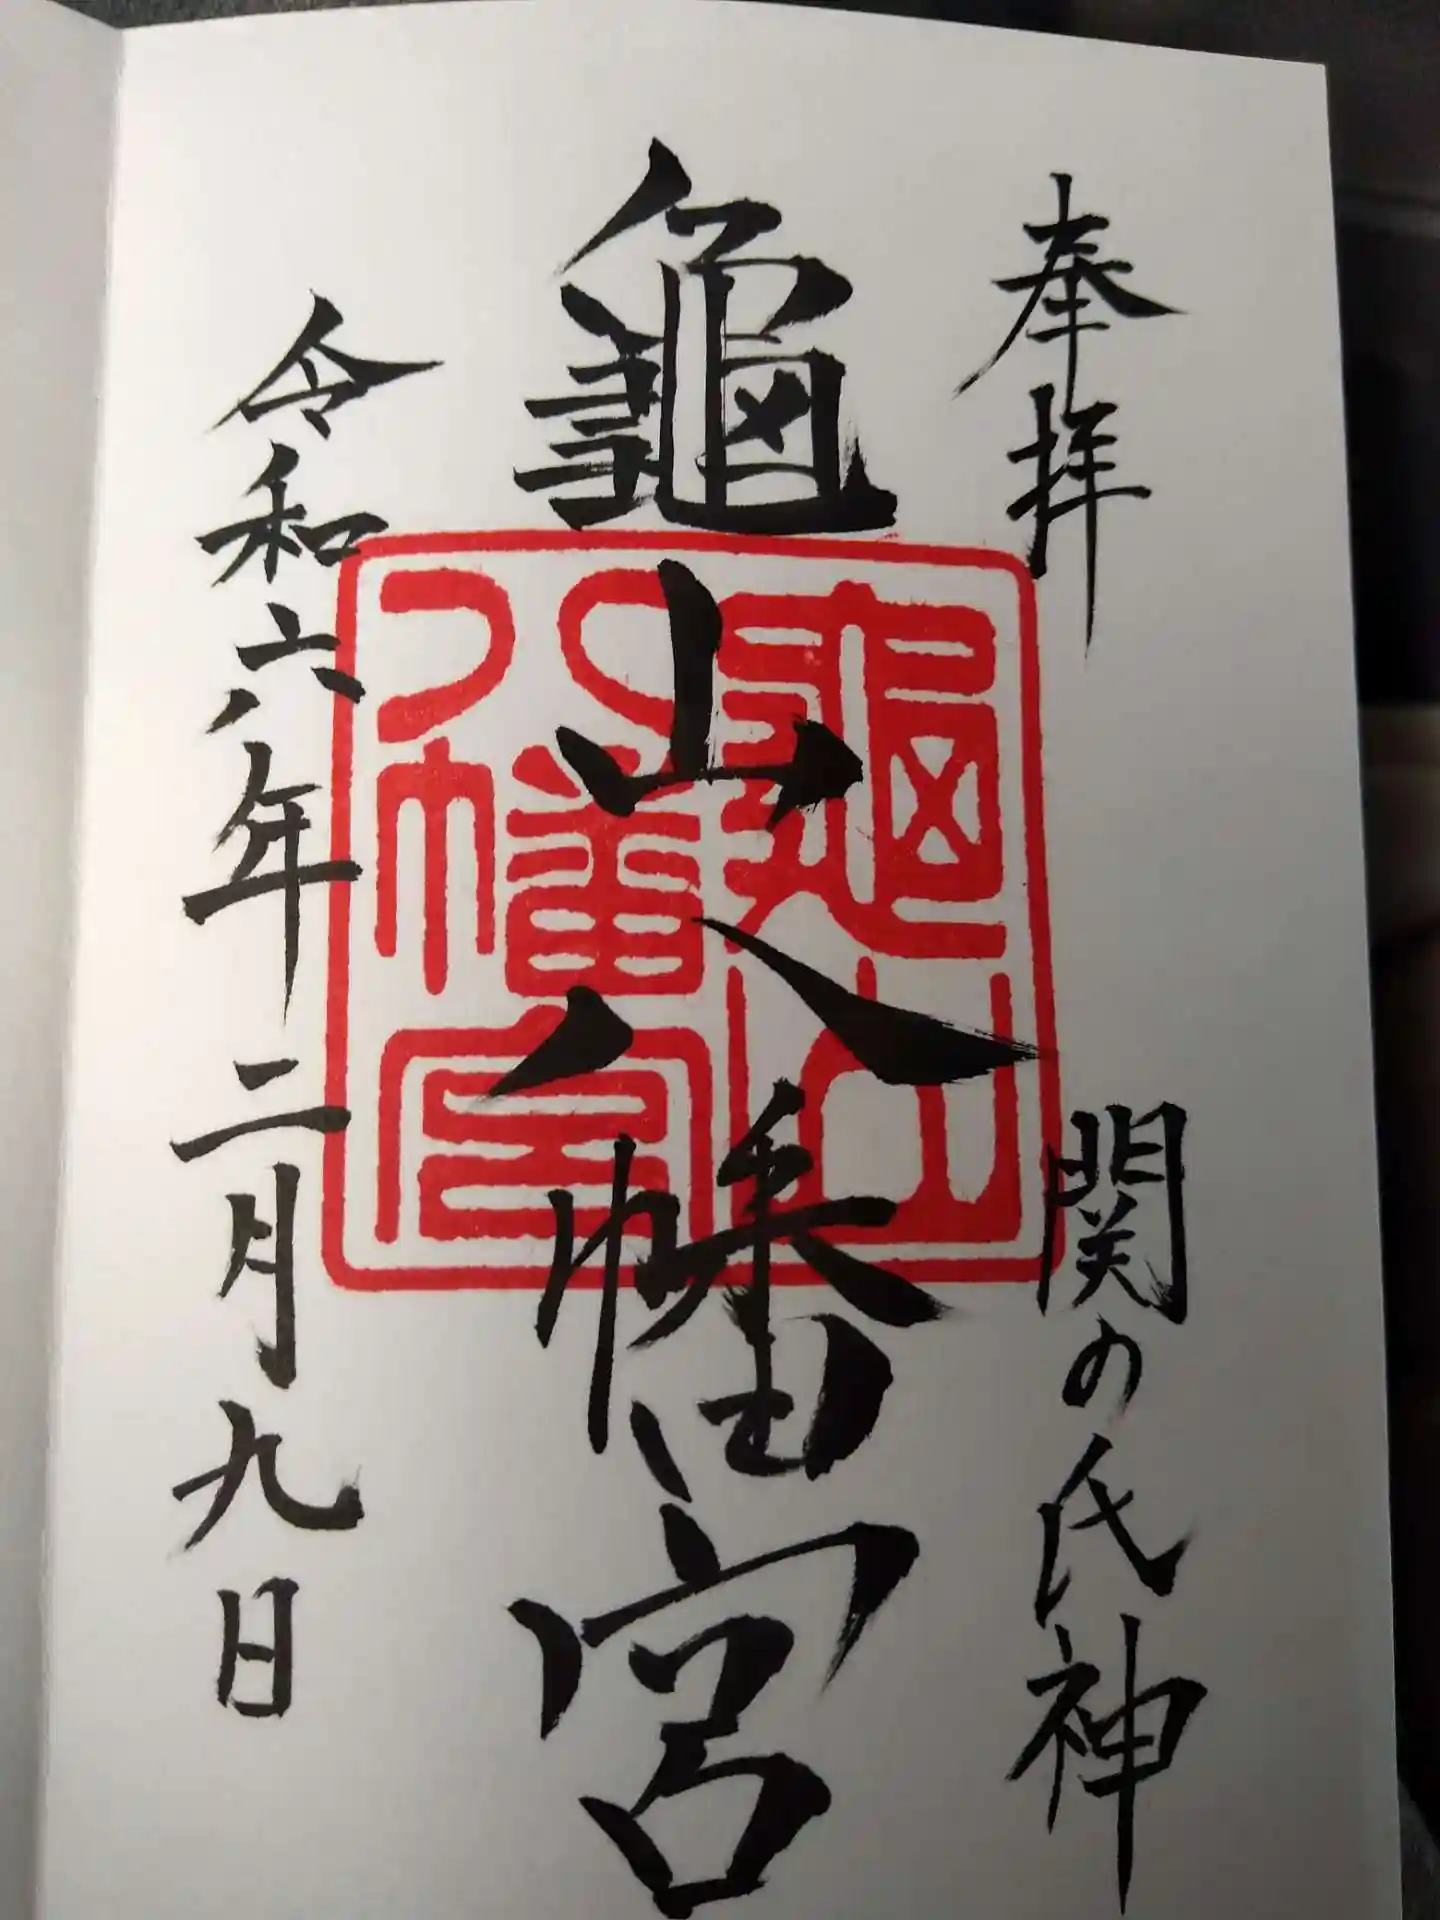 奉拝 関の氏神
龜山八幡宮
龜山
八幡宮
令和六年二月九日